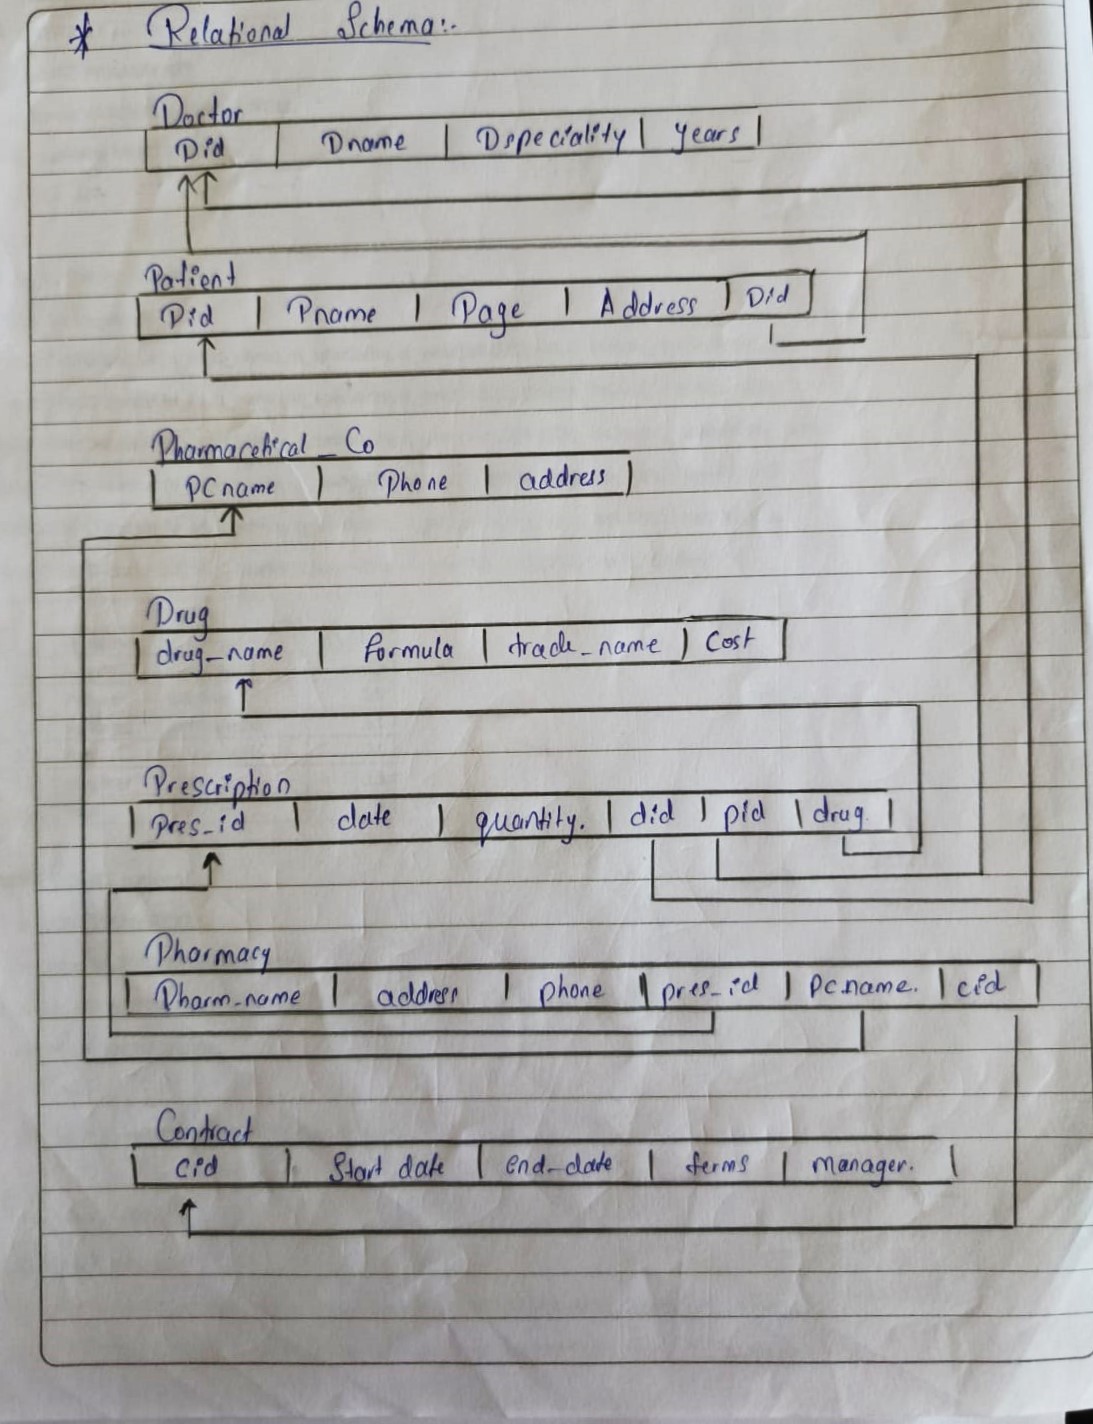 * Relational Schema:-
Doctor
Did | Dname | Dspeciality | years |
Patient
Pid | Pname | Page | Address | Did
Pharmacetical_Co
PC name | Phone | address |
Drug
drug_name | formula | trade_name | Cost |
Prescription
Pres_id | date | quantity. | did | pid | drug |
Pharmacy
Pharm_name | address | phone | pres_id | Pc.name. | cid |
Contract
cid | Start date | end_date | terms | manager. |